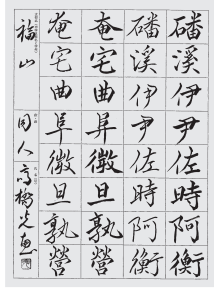 磻溪伊尹佐時阿衡
磻溪伊尹佐時阿衡
奄宅曲阜微旦孰營
奄宅曲阜微旦孰營
福山 同人 高橋光恵